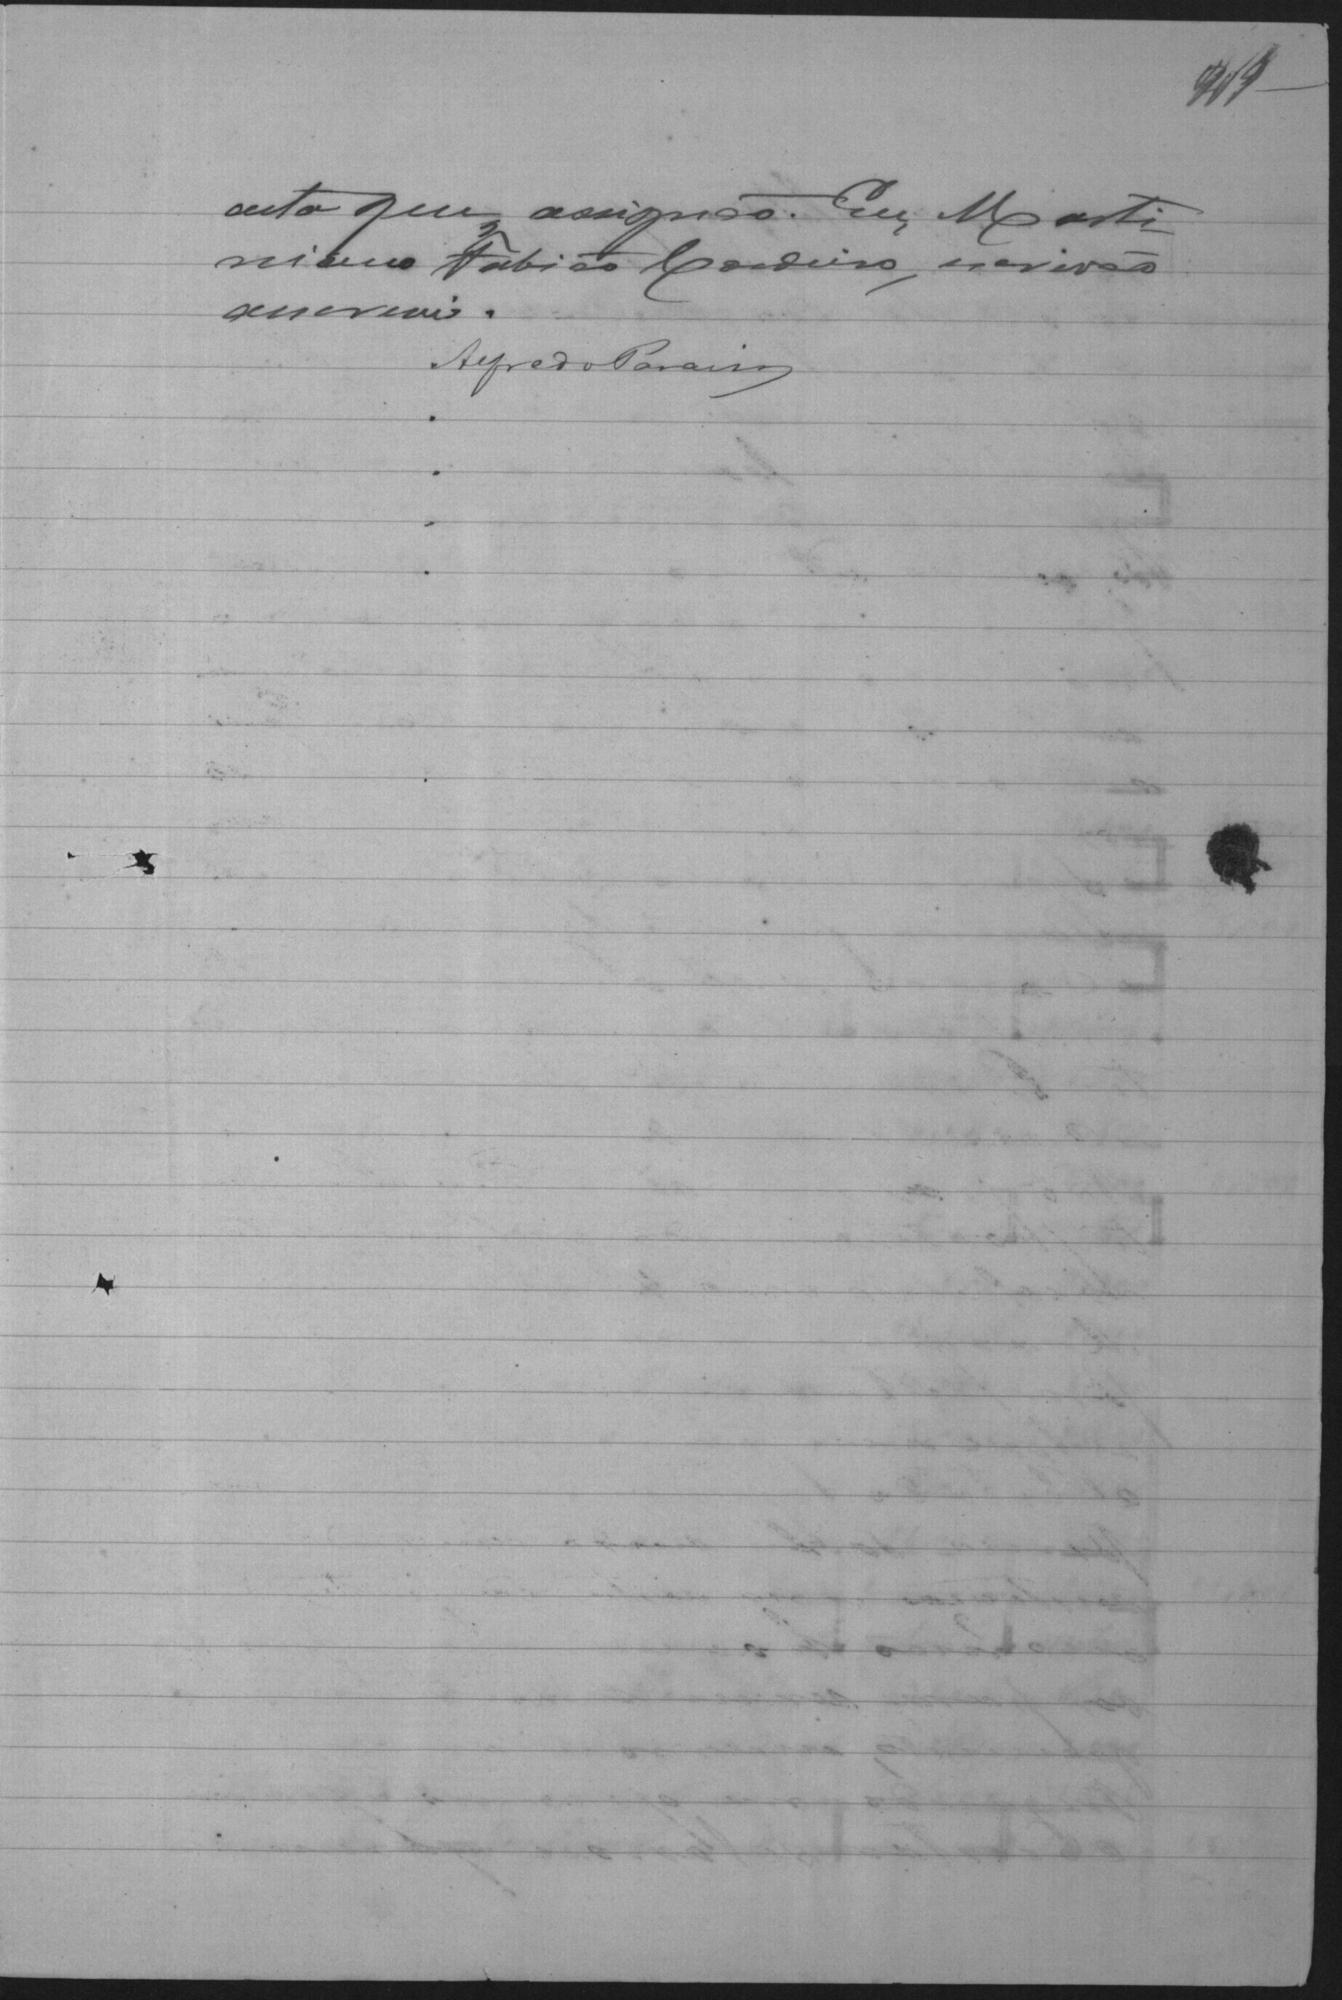 auto que assignão. Eu, Marti
niano Fabião Cordeiro, escrivão
escrevi.
Alfredo Paraiso